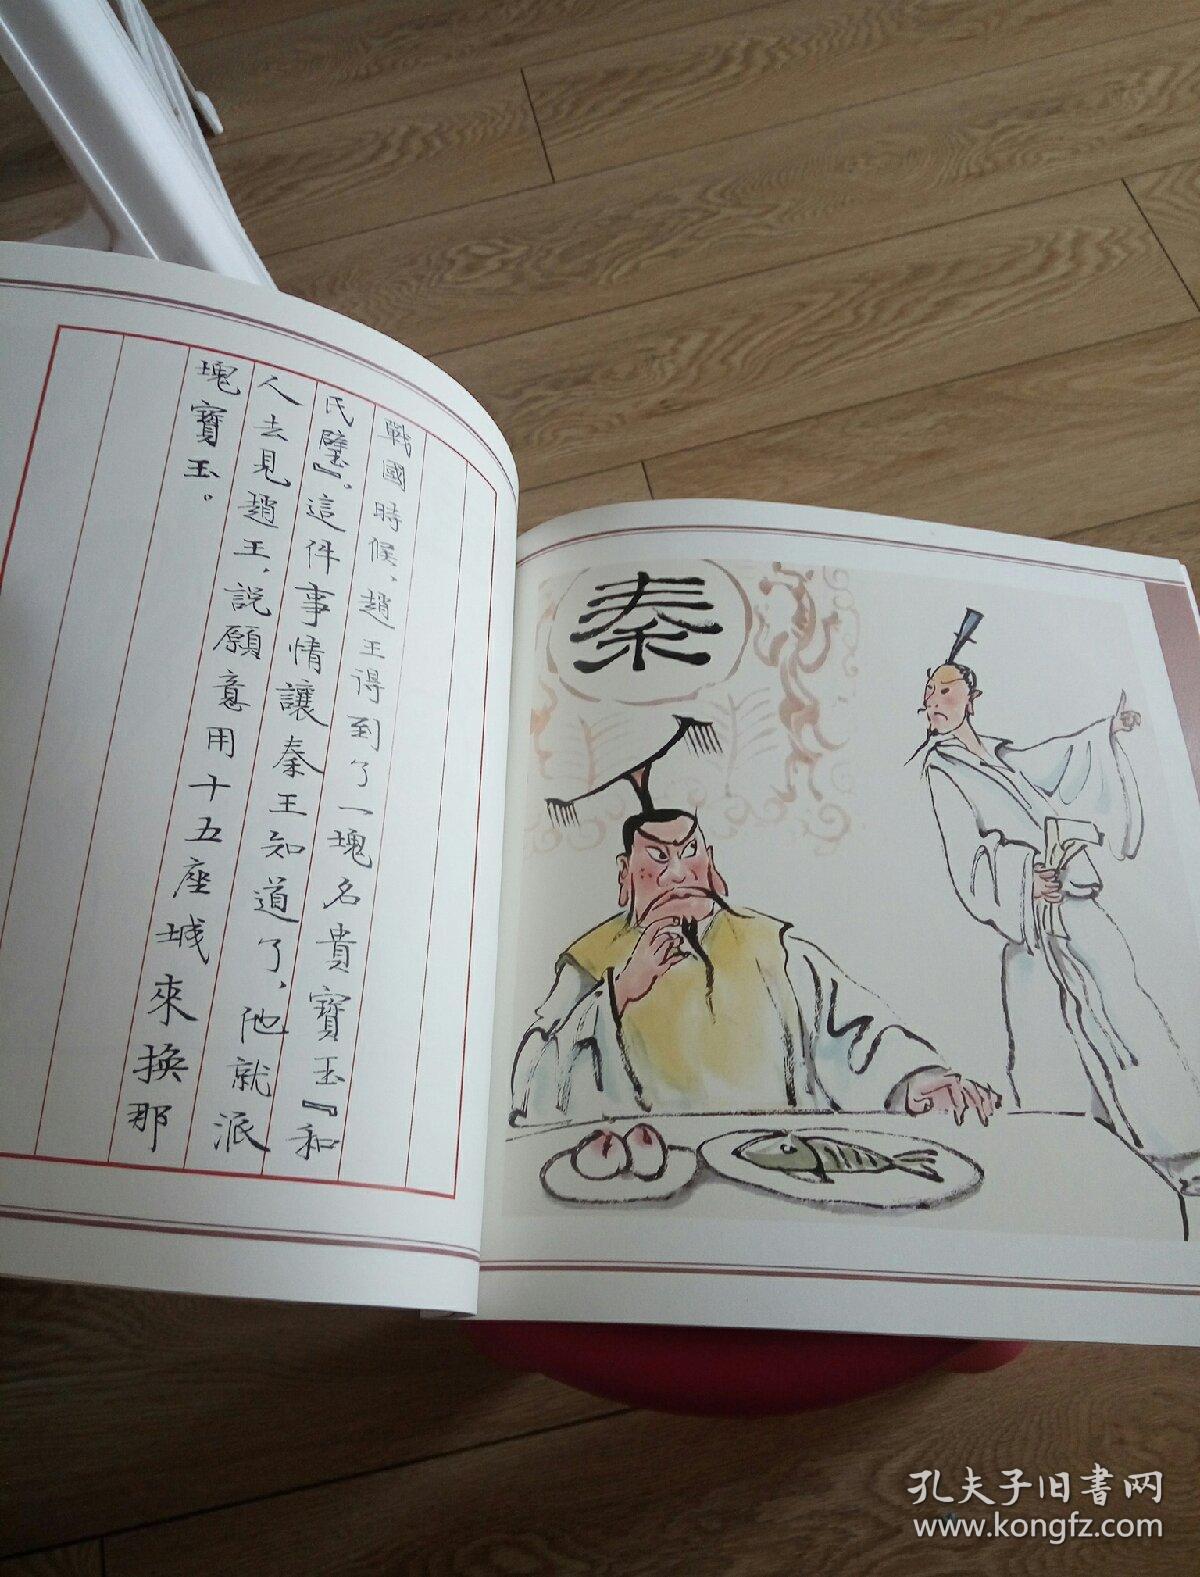 戰國時候，趙王得到了一塊名貴寶玉『和
氏璧』。這件事情讓秦王知道了，他就派
人去見趙王，説願意用十五座城來換那
塊寶玉。
秦
孔夫子旧书网
www.kongfz.com